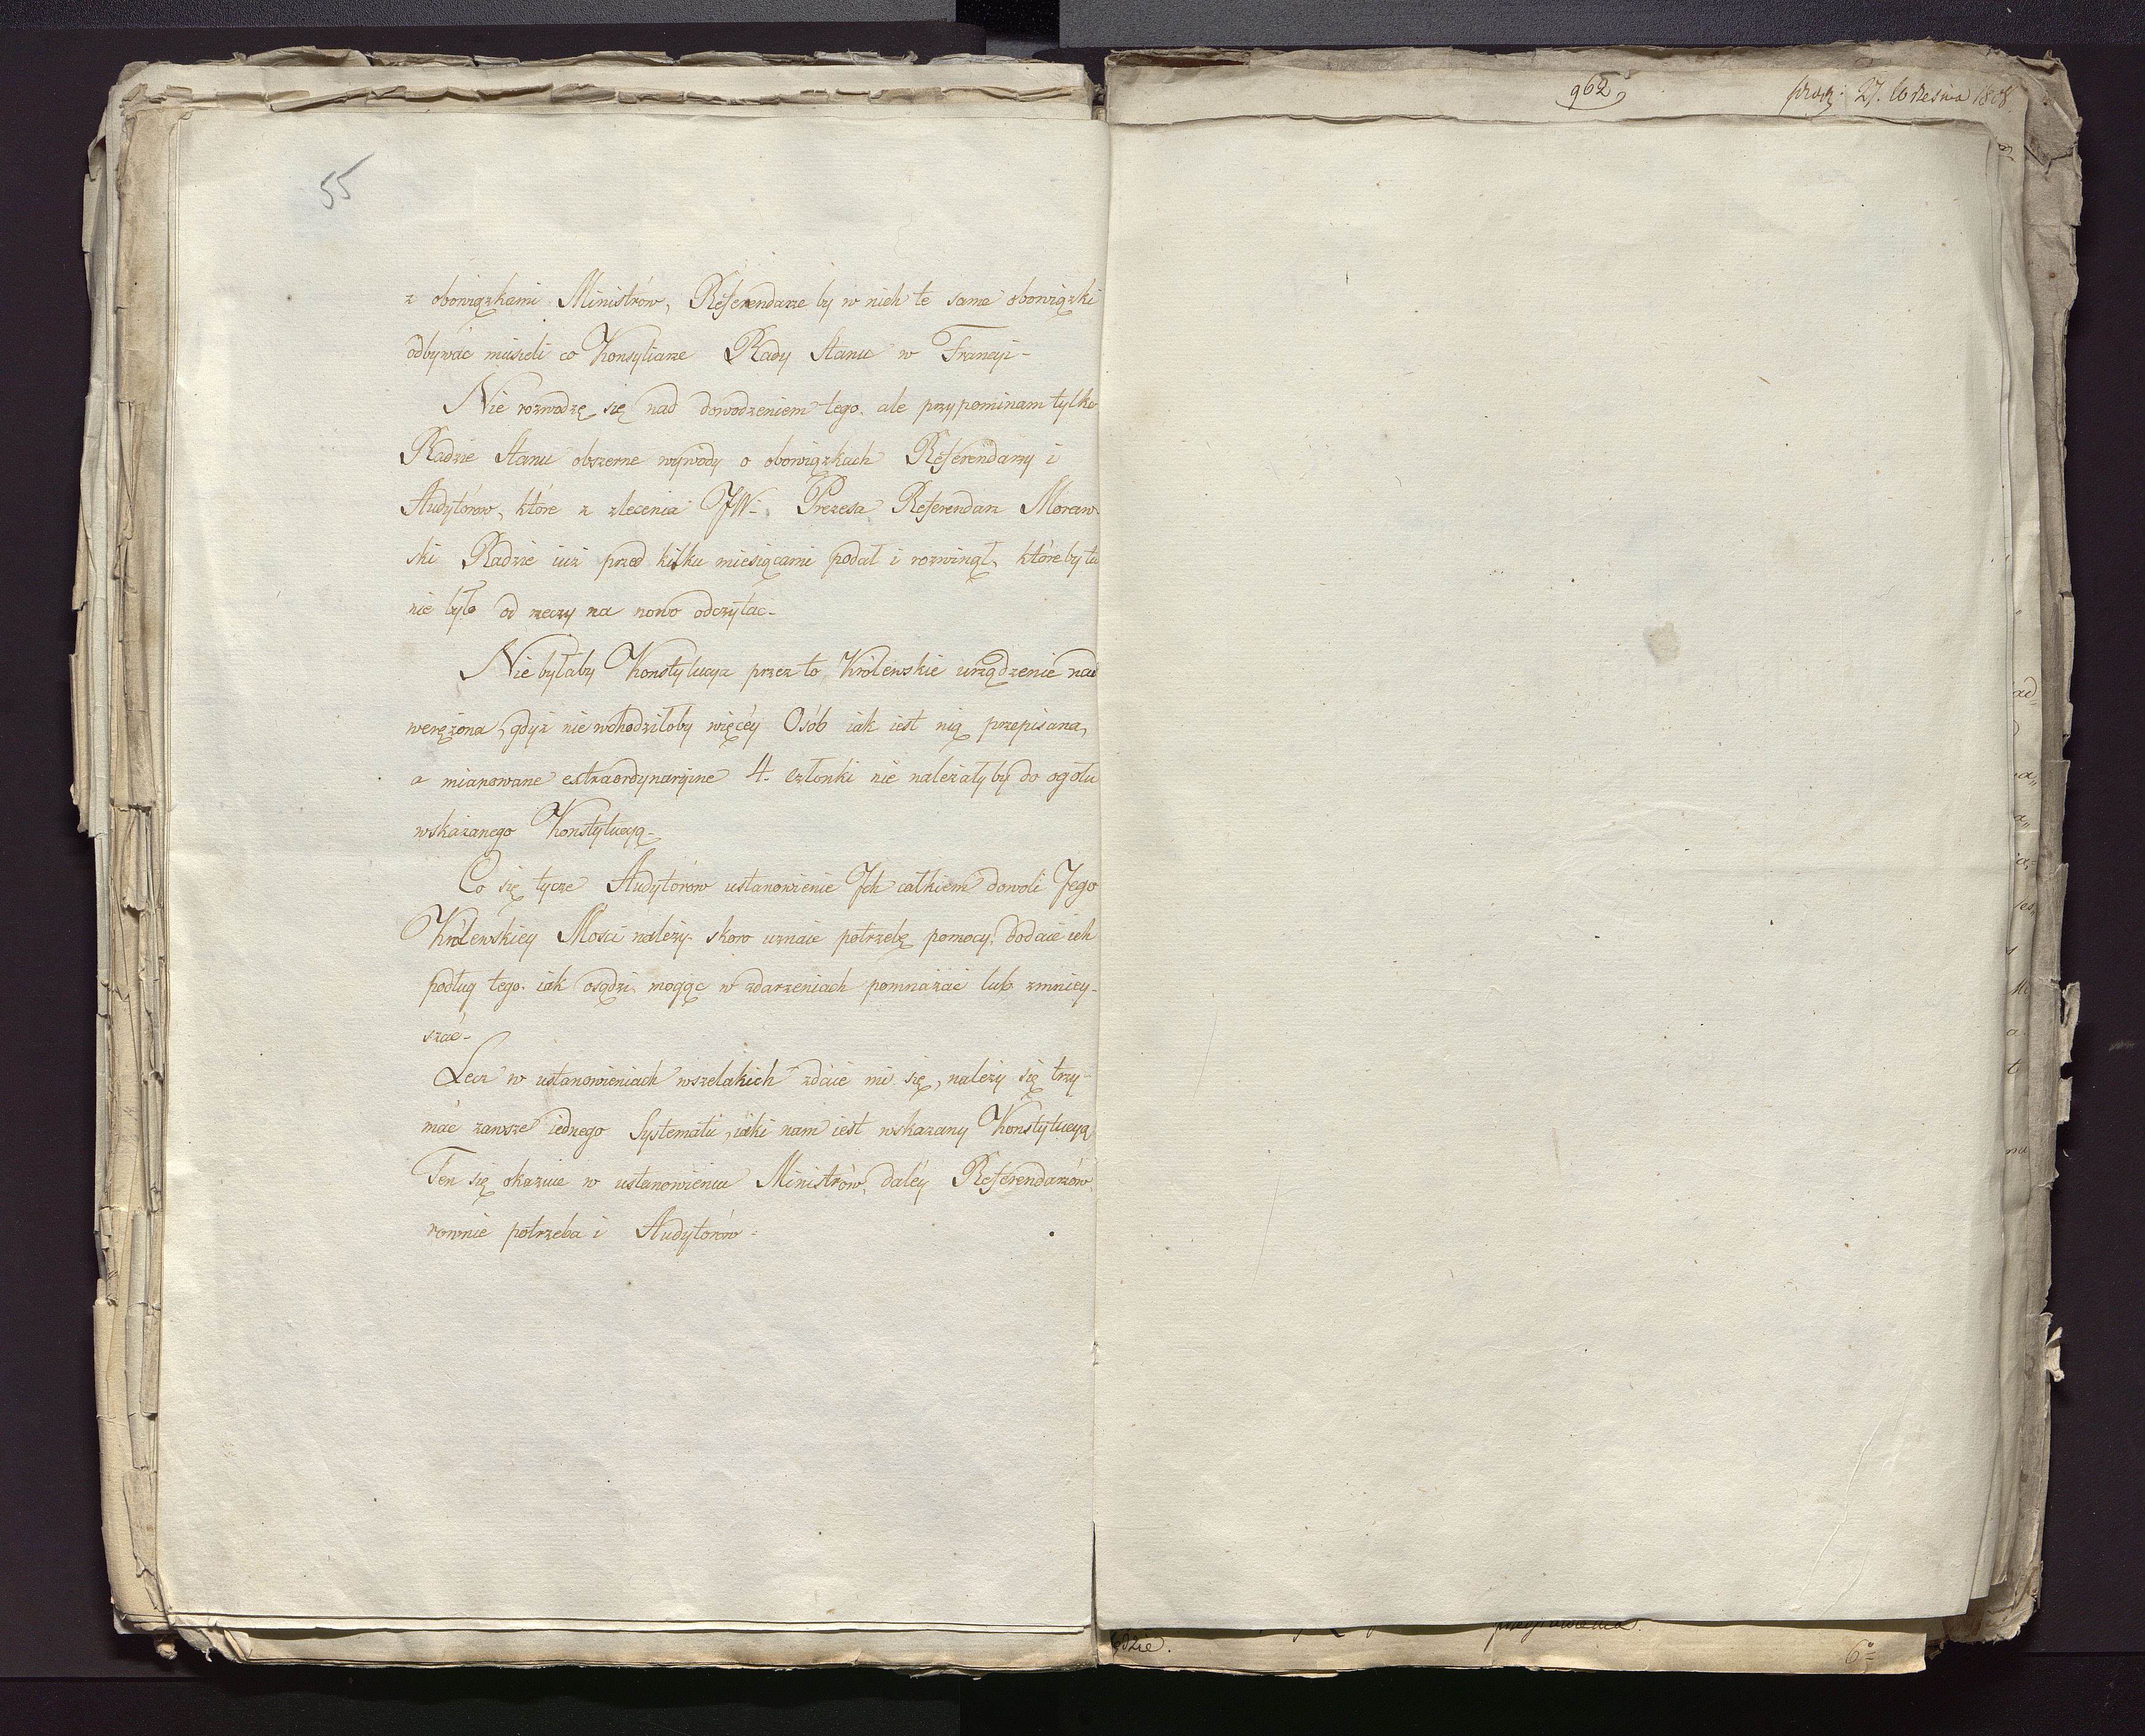 55
z obowiązkami Ministrów, Referendarze by w nich te same obowiązki
odbywać musieli co Konsyliarze Rady Stanu w Francyi-
Nie rozwodzę się nad dowodzeniem tego, ale przypominam tylko
Radzie Stanu obszerne wywody o obowiązkach Referendarzy i
Audytórow, które z zlecenia JW. Prezesa Referendarz Moraw-
ski Radzie iuż przed kilku miesiącami podał i rozwinął, któreby tu
nie było od rzeczy na nowo odczytać-
Nie byłaby Konstytucya przez to Królewskie urządzenie nad
weręzona, gdyż nie wchodziłoby więcéy Osób iak iest nią przepisana,
a mianowane extraordynaryine 4. członki nie należałyby do ogołu
wskazanego Konstytucyą-
Co się tycze Audytorów ustanowienie Jch całkiem dowoli Jego
Królewskiey Mości należy. skoro uznaie potrzebę pomocy, dodaie ich
podług tego. iak osądzi, mogąc w zdarzeniach pomnażać lub zmniey-
szać-
Lecz w ustanowieniach wszelakich zdaie mi się, należy się trzy-
mać zawsze iednego Systematu, iaki nam iest wskazany Konstytucyą
Ten się okazuie w ustanowieniu Ministrów, daléy Referendarzów,
rownie potrzeba i Audytorów-
962
27. Września 1808.
6°